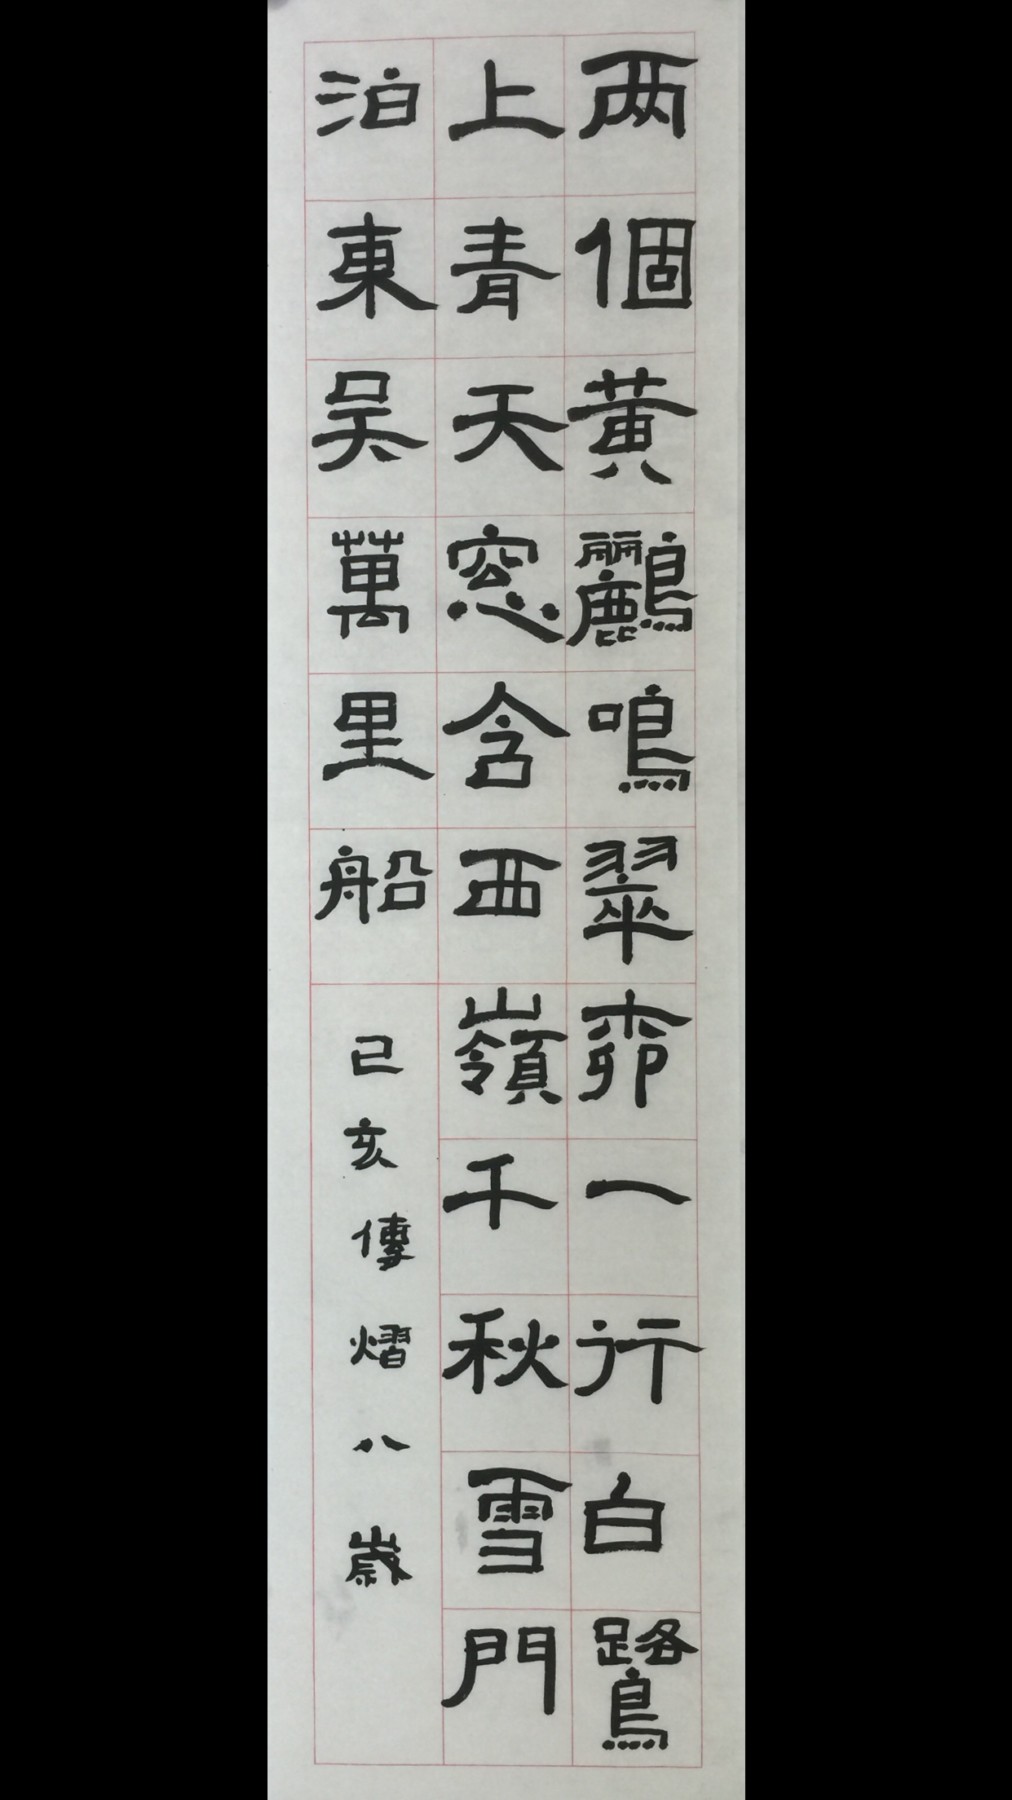 两個黄鸝鳴翠柳一行白鷺
上青天窓含西嶺千秋雪門
泊東吴萬里船
己亥傅熠八歲